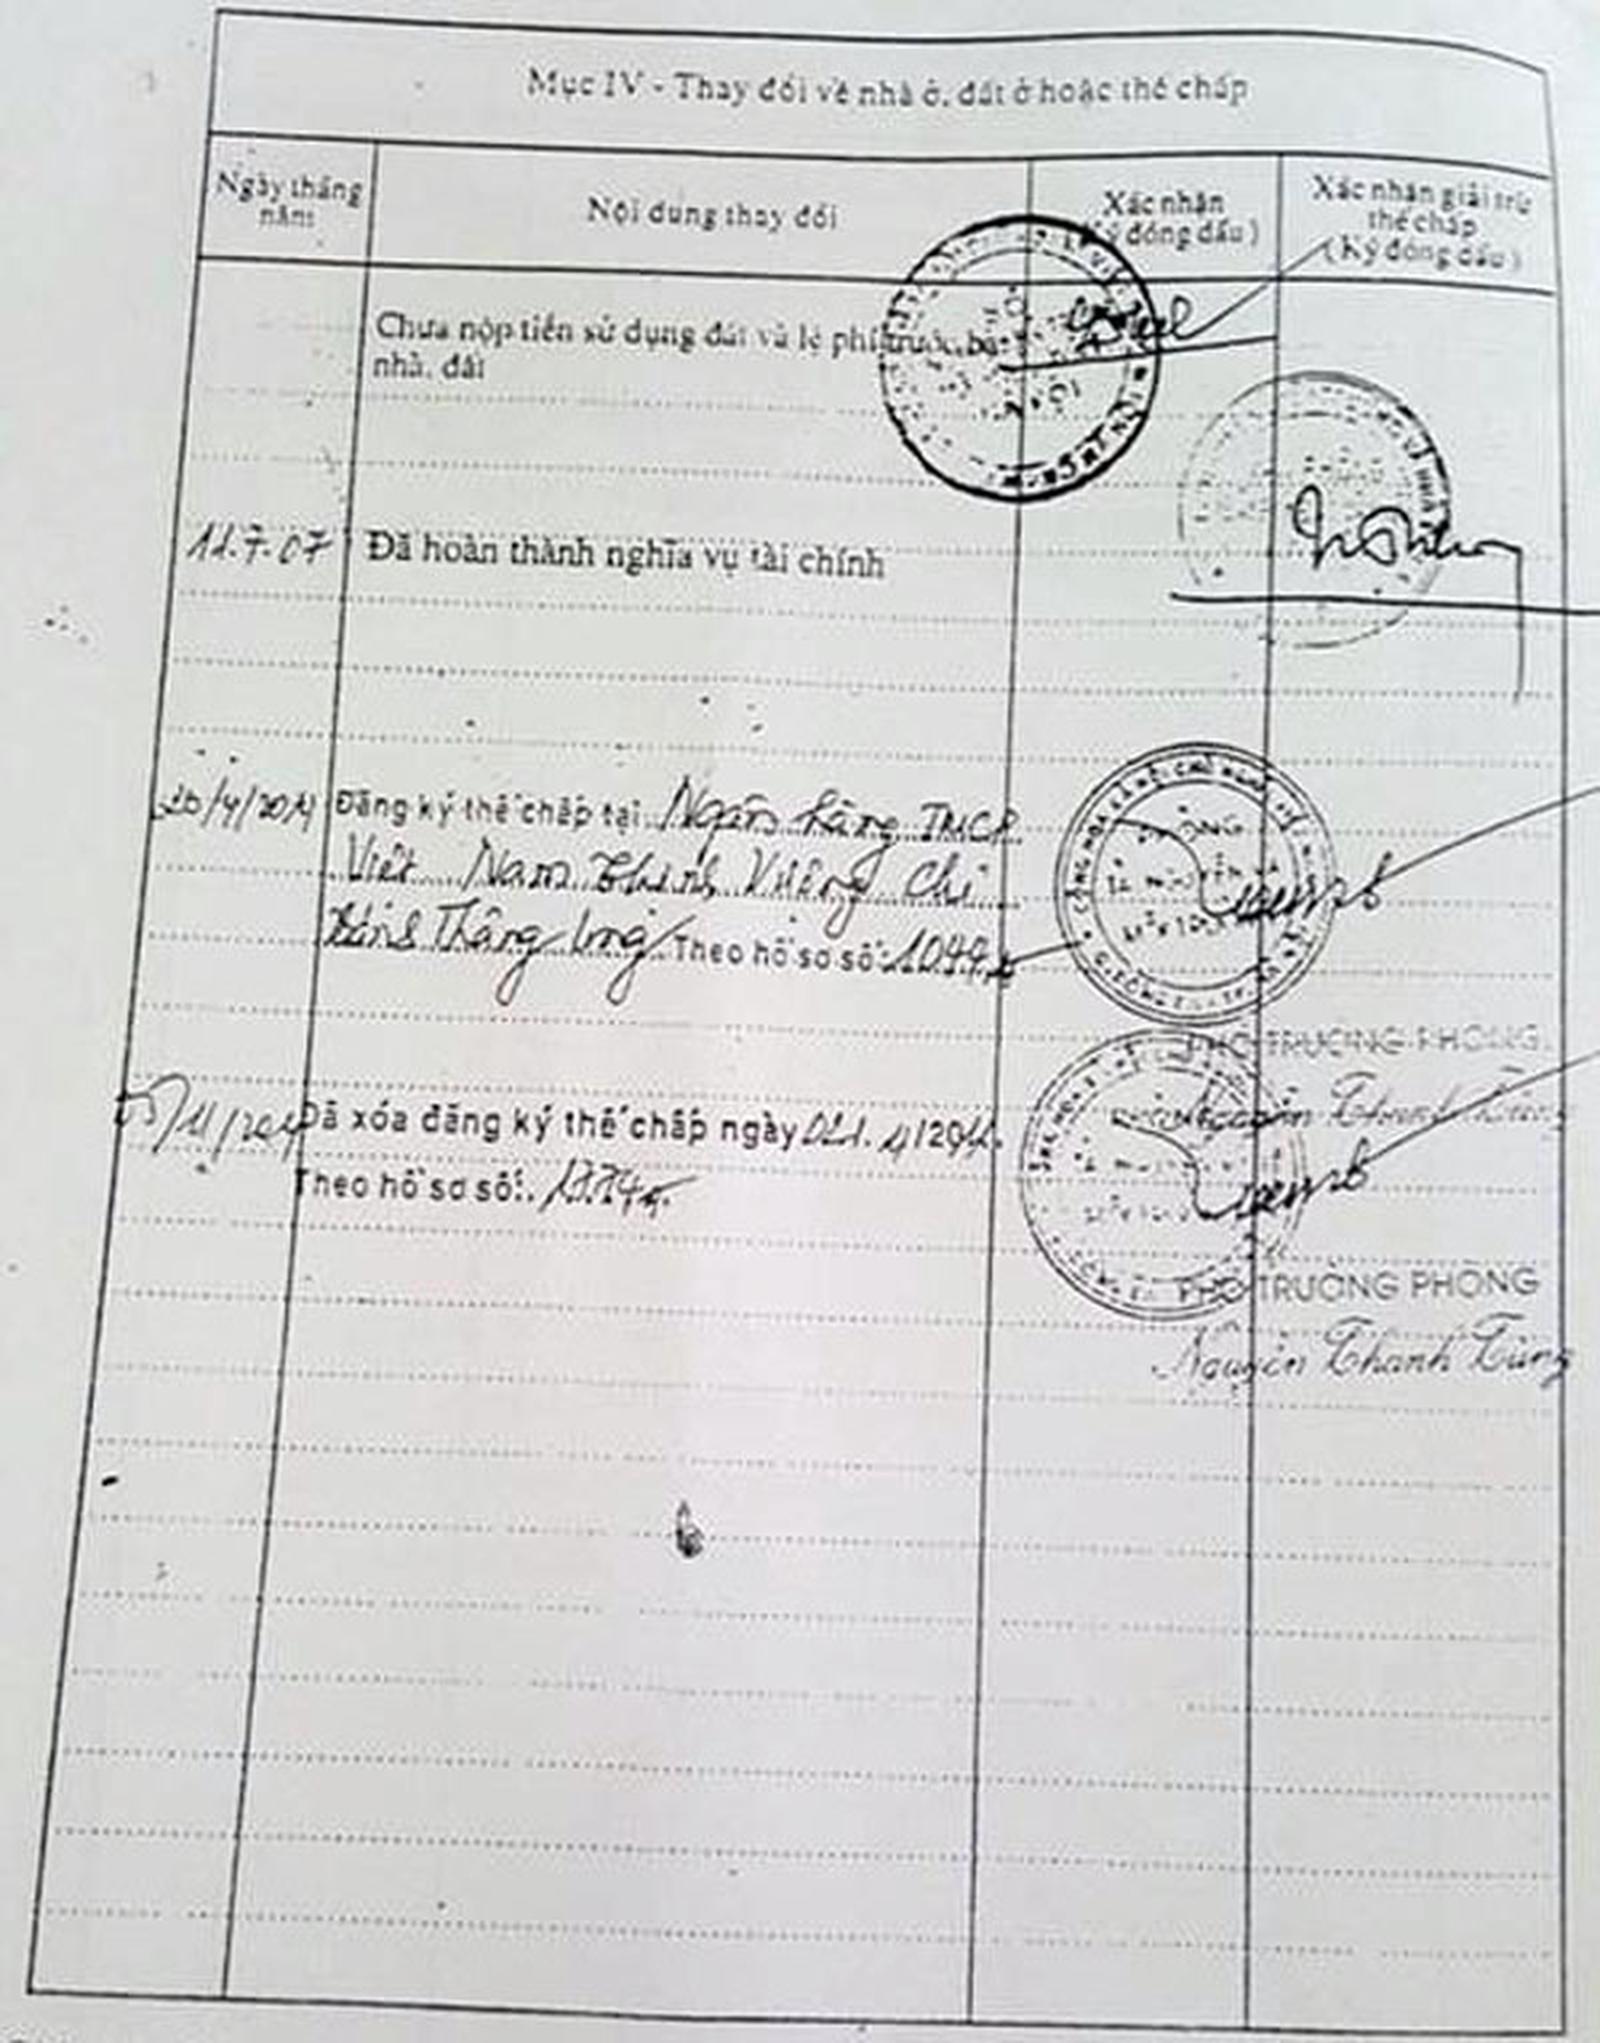 Mục IV - Thay đổi về nhà ở, đất ở hoặc thế chấp
Ngày tháng năm
Nội dung thay đổi
Xác nhận (Ký đóng dấu)
Xác nhận giải trừ thế chấp (Ký đóng dấu)
Chưa nộp tiền sử dụng đất và lệ phí trước bạ
nhà, đất
11.7.07 Đã hoàn thành nghĩa vụ tài chính
Đăng ký thế chấp tại Ngân hàng TMCP
Việt Nam Thịnh Vượng Chi
Thăng Long Theo hồ sơ số:
PHÓ TRƯỞNG PHÒNG
Nguyễn Thanh Tùng
Đã xóa đăng ký thế chấp ngày
Theo hồ sơ số:
PHÓ TRƯỞNG PHÒNG
Nguyễn Thanh Tùng